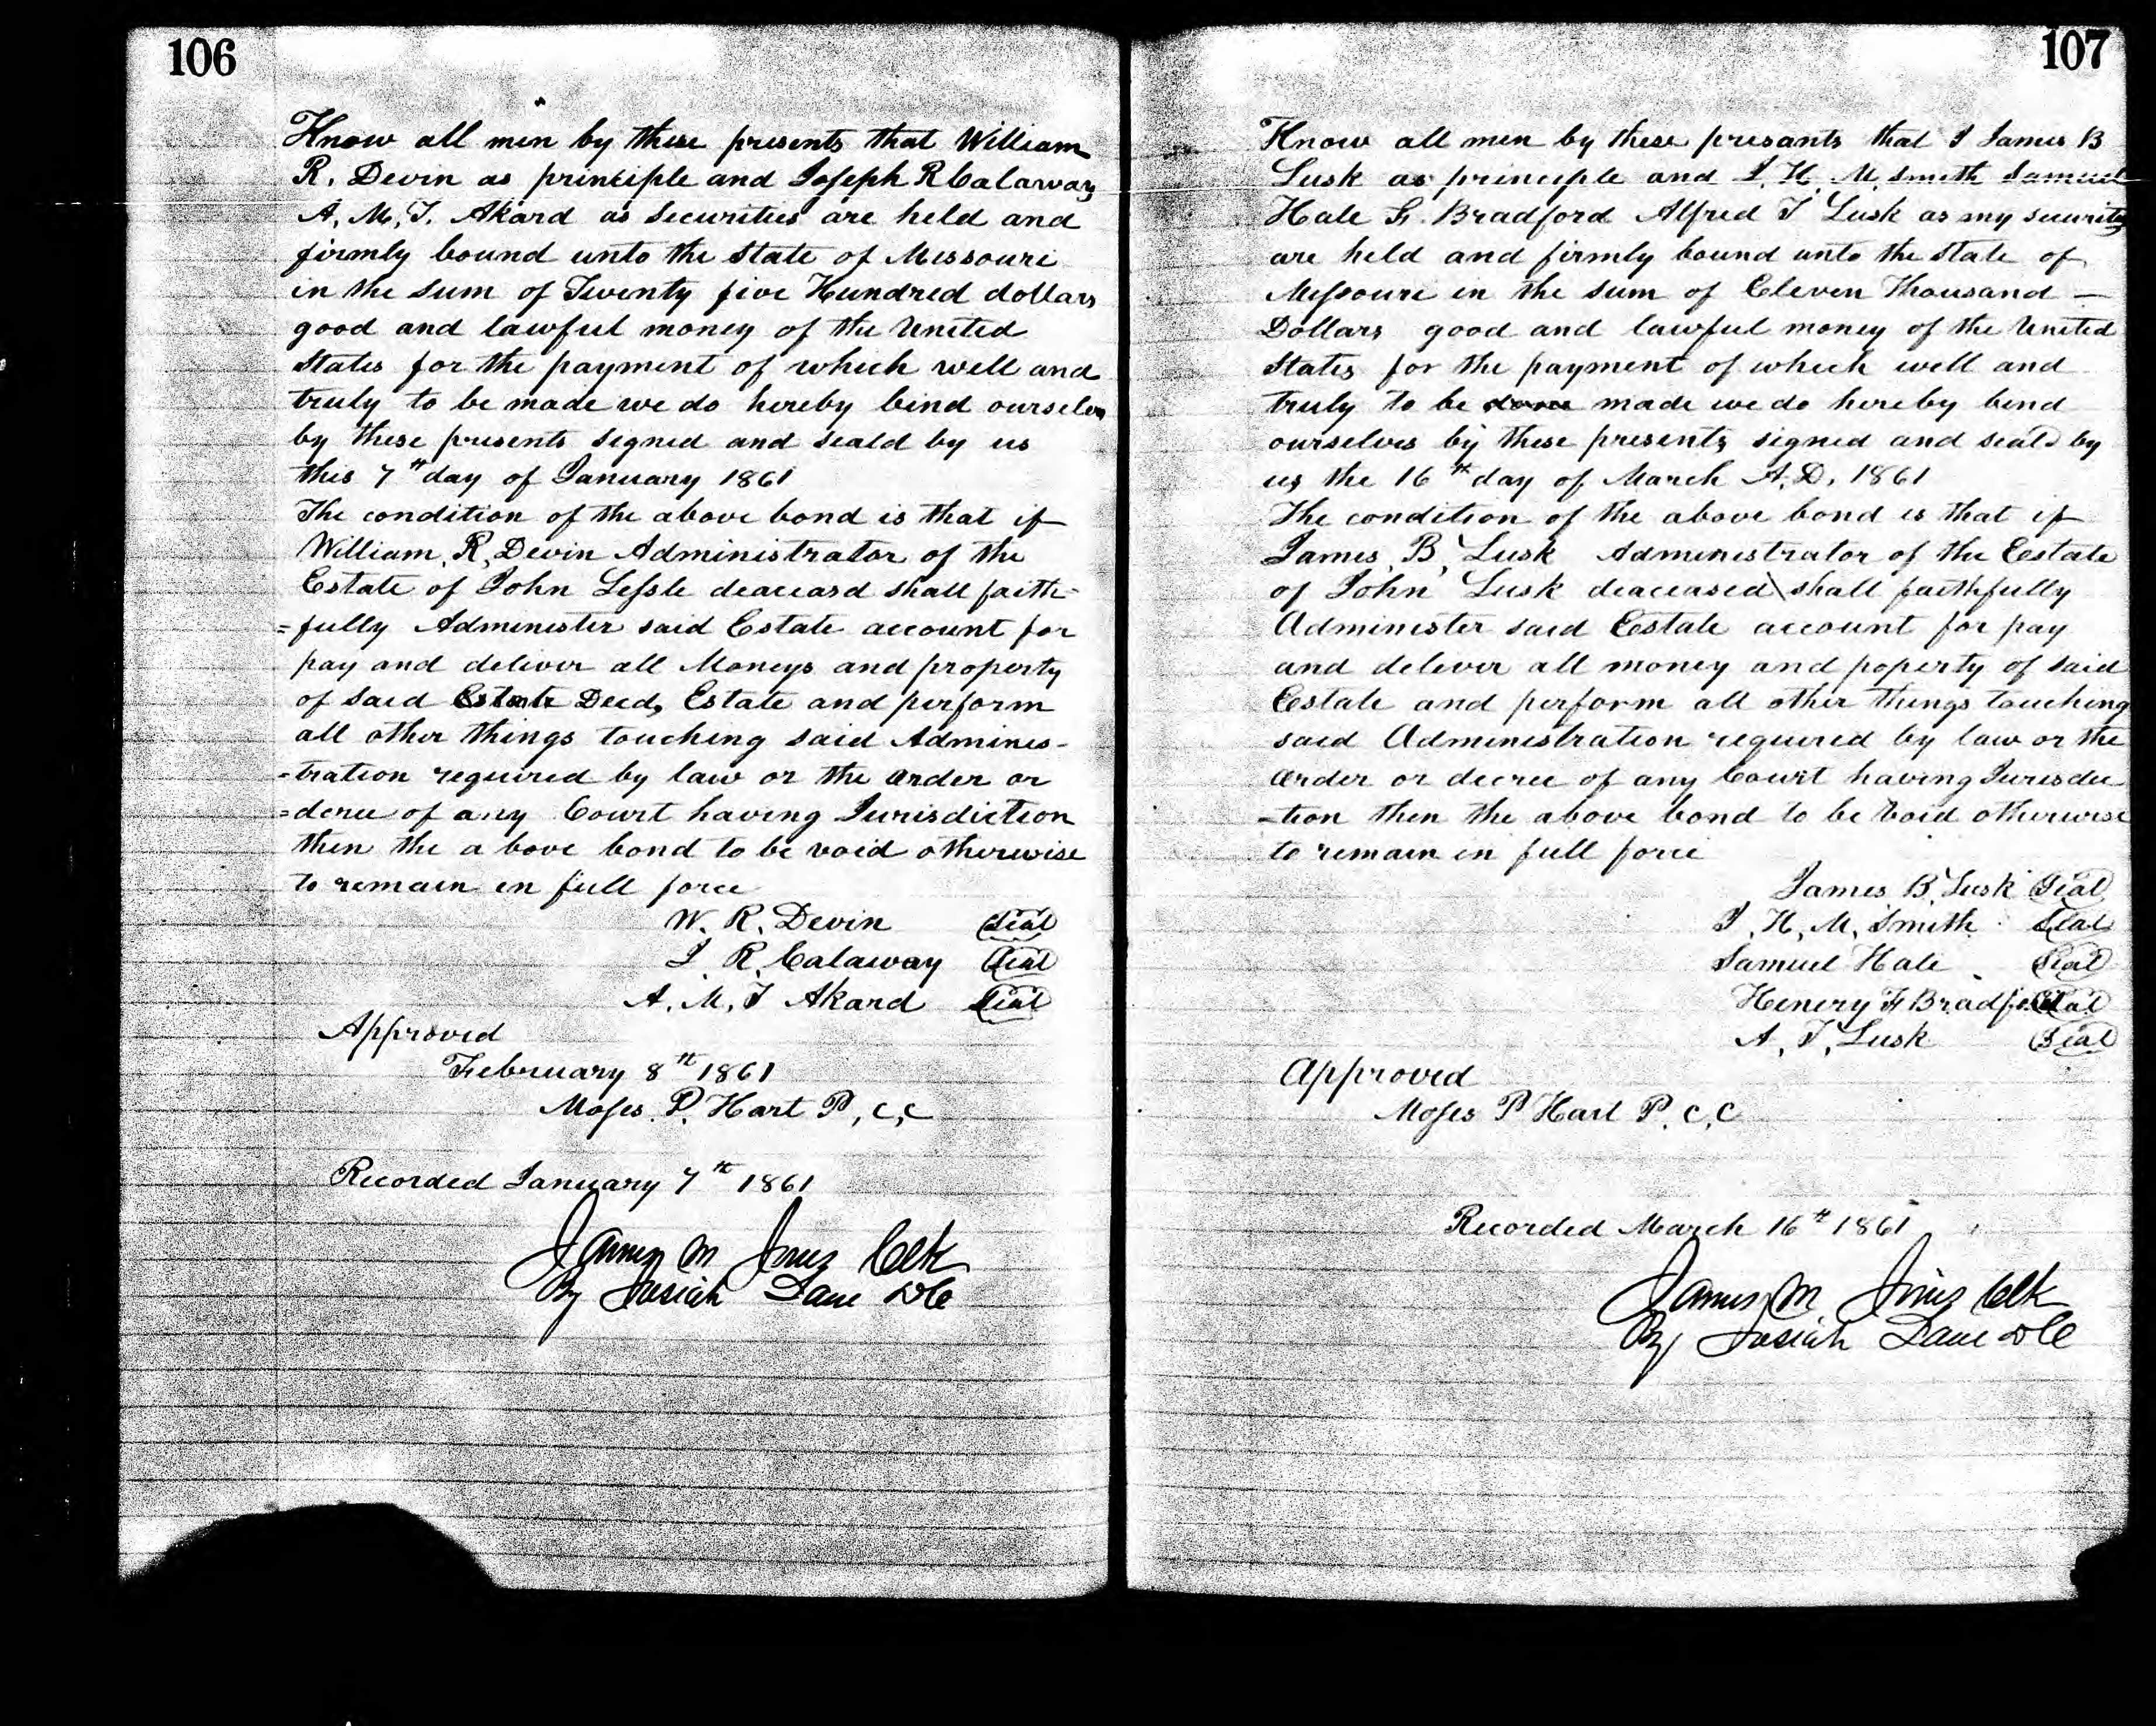 106
Know all men by these presents that William
R. Devin as principle and Joseph R Calaway
A. M. T. Akard as Securities are held and
firmly bound unto the State of Missouri
in the sum of Twenty five Hundred dollars
good and lawful money of the United
States for the payment of which well and
truly to be made we do hereby bind ourselves
by these presents signed and seald by us
this 7th day of January 1861
The condition of the above bond is that if
William R, Devin Administrator of the
Estate of John deaceasd shall faith-
=fully Administer said Estate account for
pay and deliver all Moneys and property
of said Estate Decd, Estate and perform
all other things touching said Adminis-
-tration required by law or the order or
=decree of any Court having Jurisdiction
then the a bove bond to be void otherwise
to remain in full force
W. R. Devin Seal
J. R. Calaway Seal
A. M, T Akard Seal
Approved
February 8th 1861
Moses P. Hart P, C, C
Recorded January 7th 1861
James M Jones Clk
By Josiah Lane D C
107
Know all men by these presants that I James B
Lusk as principle and J. H. M, Smith Samuel
Hale F. Bradford Alfred T Lusk as my security
are held and firmly bound unto the State of
Missouri in the sum of Eleven Thousand —
Dollars good and lawful money of the United
States for the payment of which well and
truly to be done made we do hereby bind
ourselves by these presents signed and seald by
us the 16th day of March A. D, 1861
The condition of the above bond is that if
James, B, Lusk Administrator of the Eestate
of John Lusk deaceased\ shall faithfully
Administer said Eestate account for pay
and deliver all money and poperty of said
Eestate and perform all other things touching
said Administration required by law or the
order or decree of any Court having Jurisdic
-tion then the above bond to be void otherwise
to remain in full force
James B, Lusk Seal
J, H, M, Smith Seal
Samuel Hale Seal
Henery F Bradford Seal
A, T, Lusk Seal
Approved
Moses P Hart P, C, C
Recorded March 16th 1861
James M Jones Clk
By Josiah Lane D C